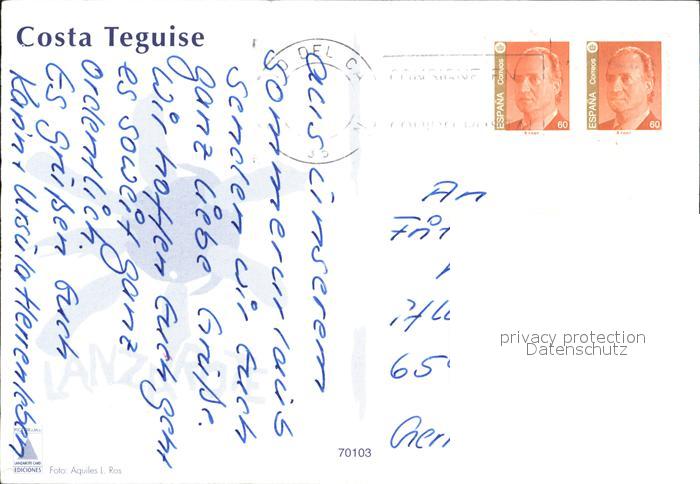 Costa Teguise
Aus unserem
Sommerurlaub
senden wir Euch
ganz liebe Grüße.
Wir hoffen Euch geht
es soweit ganz
ordentlich.
Es grüßen Euch
Karin + Ursula
LANZAROTE
LANZAROTE CARD
EDICIONES
Foto: Aquiles L. Ros
70103
ESPAÑA Correos 60
ESPAÑA Correos 60
An
privacy protection
Datenschutz